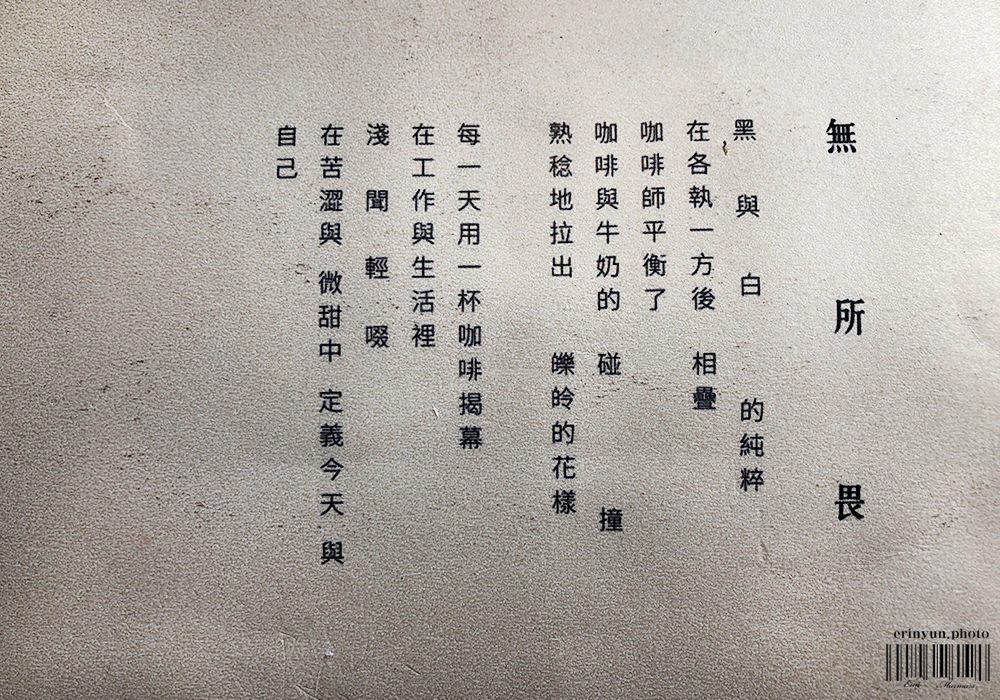 無所畏
黑 與 白 的純粹
在各執一方後 相疊
咖啡師平衡了
咖啡與牛奶的 碰 撞
熟稔地拉出 皪皊的花樣
每一天用一杯咖啡揭幕
在工作與生活裡
淺 聞 輕 啜
在苦澀與 微甜中 定義今天 與
自己
erinyun.photo